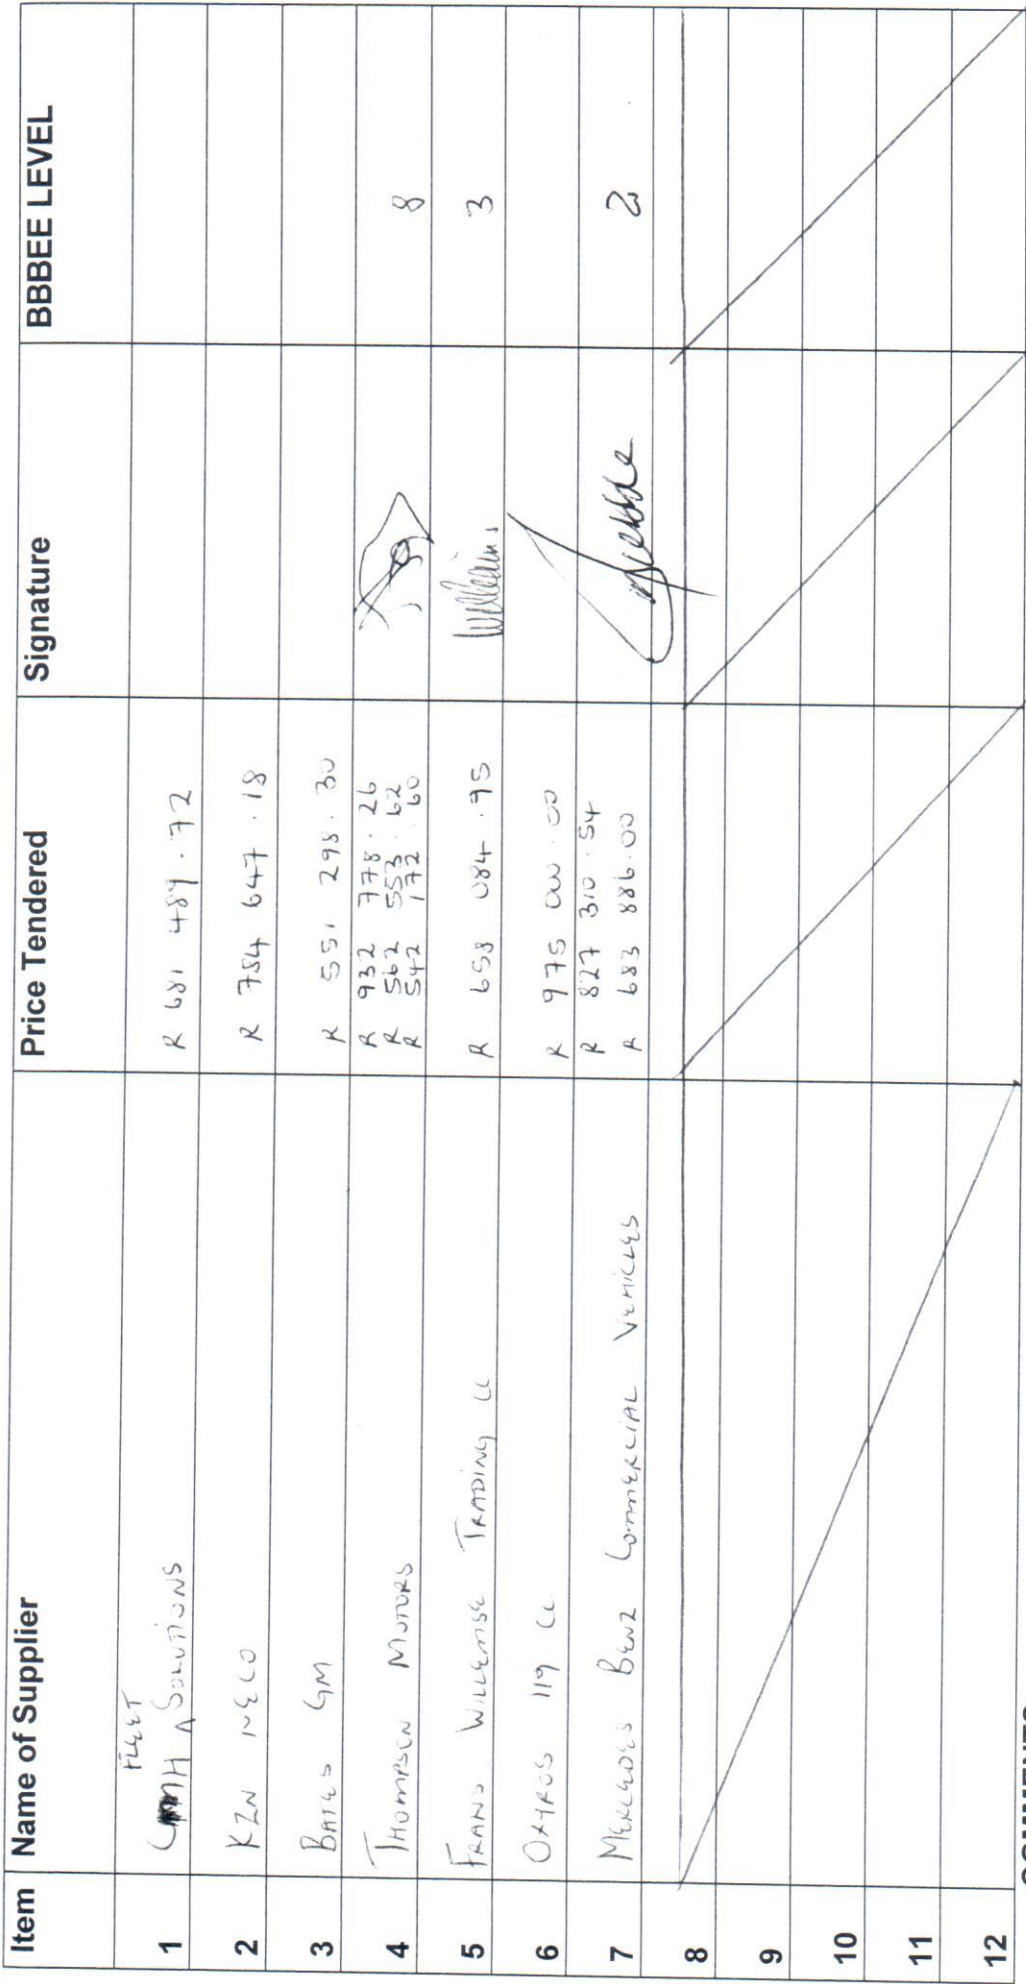 Item Name of Supplier Price Tendered Signature BBBEE LEVEL
FLEET
1 CMH ^ SOLUTIONS R 681 489.72
2 KZN NECO R 784 647.18
3 BATES GM R 551 298.30
4 THOMPSON MOTORS R 932 778.26 8
R 562 553.62
R 542 172.60
5 FRANS WILLEMSE TRADING CC R 658 084.95 3
6 119 CC R 975 000.00
7 MERCEDES BENZ COMMERCIAL VEHICLES R 827 310.54 2
R 683 886.00
8
9
10
11
12